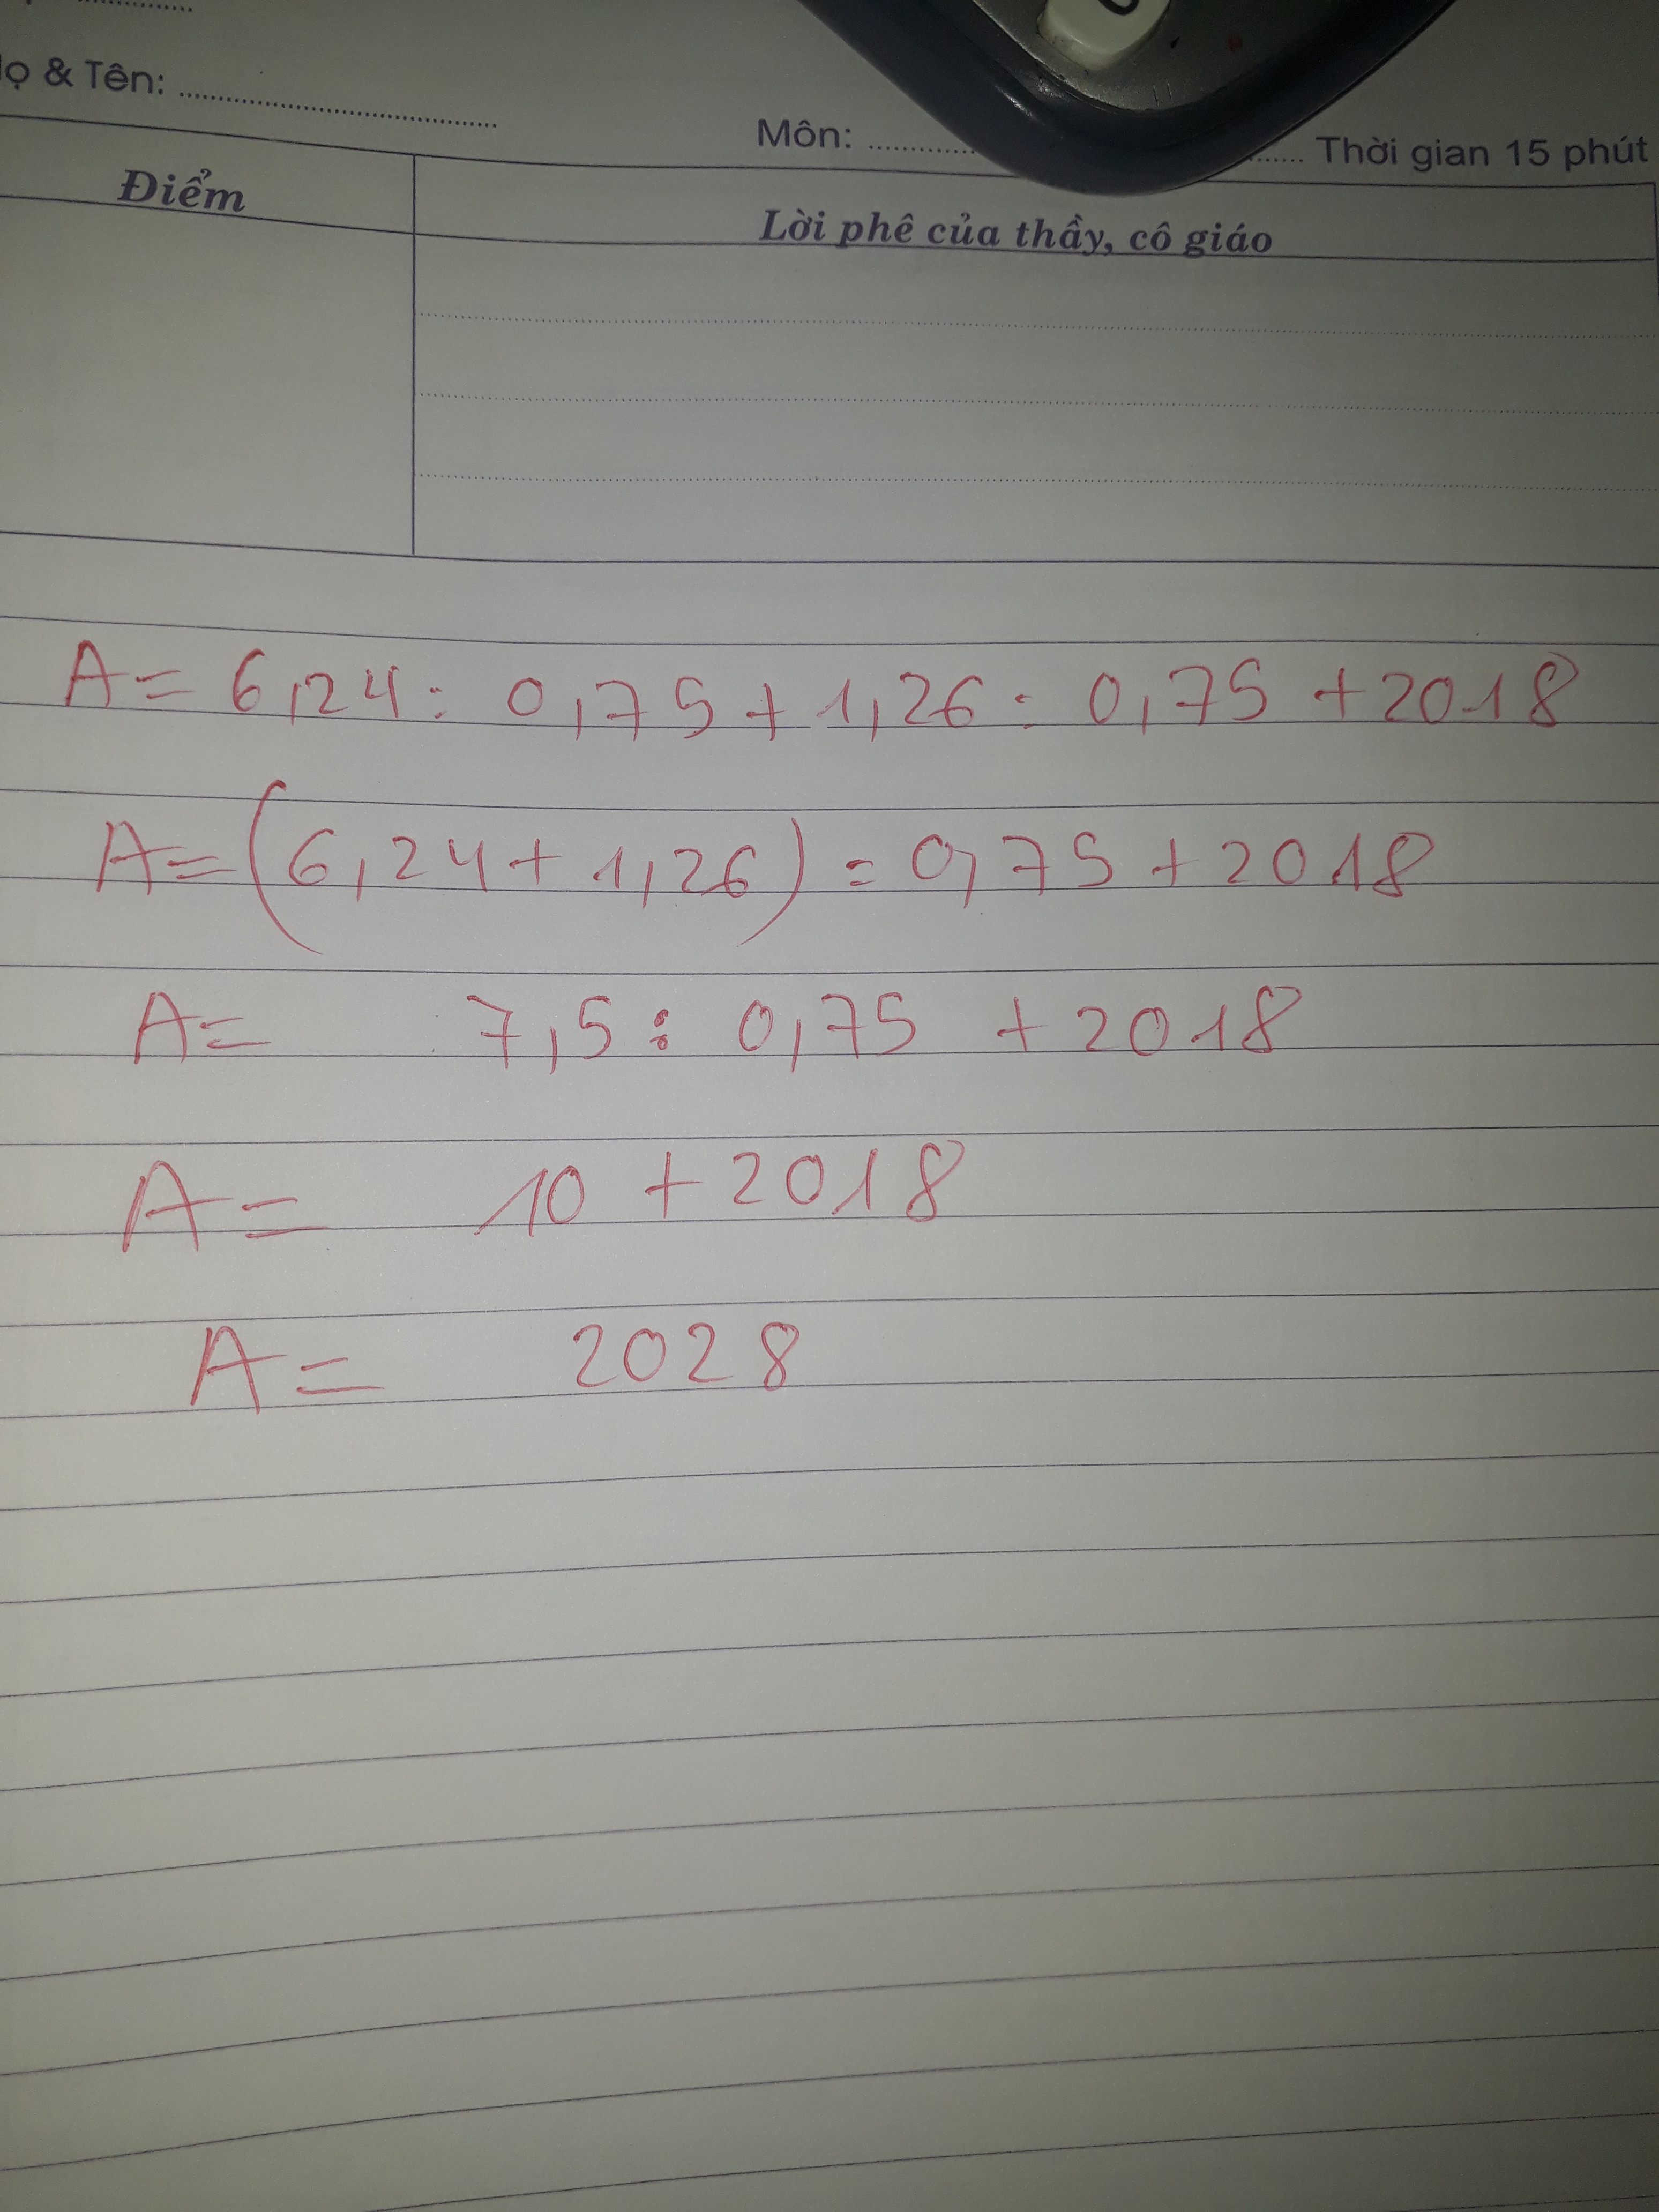 & Tên: ..............................
Môn: ............ ...... Thời gian 15 phút
Điểm
Lời phê của thầy, cô giáo
A = 6,24 : 0,75 + 1,26 : 0,75 + 2018
A = (6,24 + 1,26) : 0,75 + 2018
A = 7,5 : 0,75 + 2018
A = 10 + 2018
A = 2028